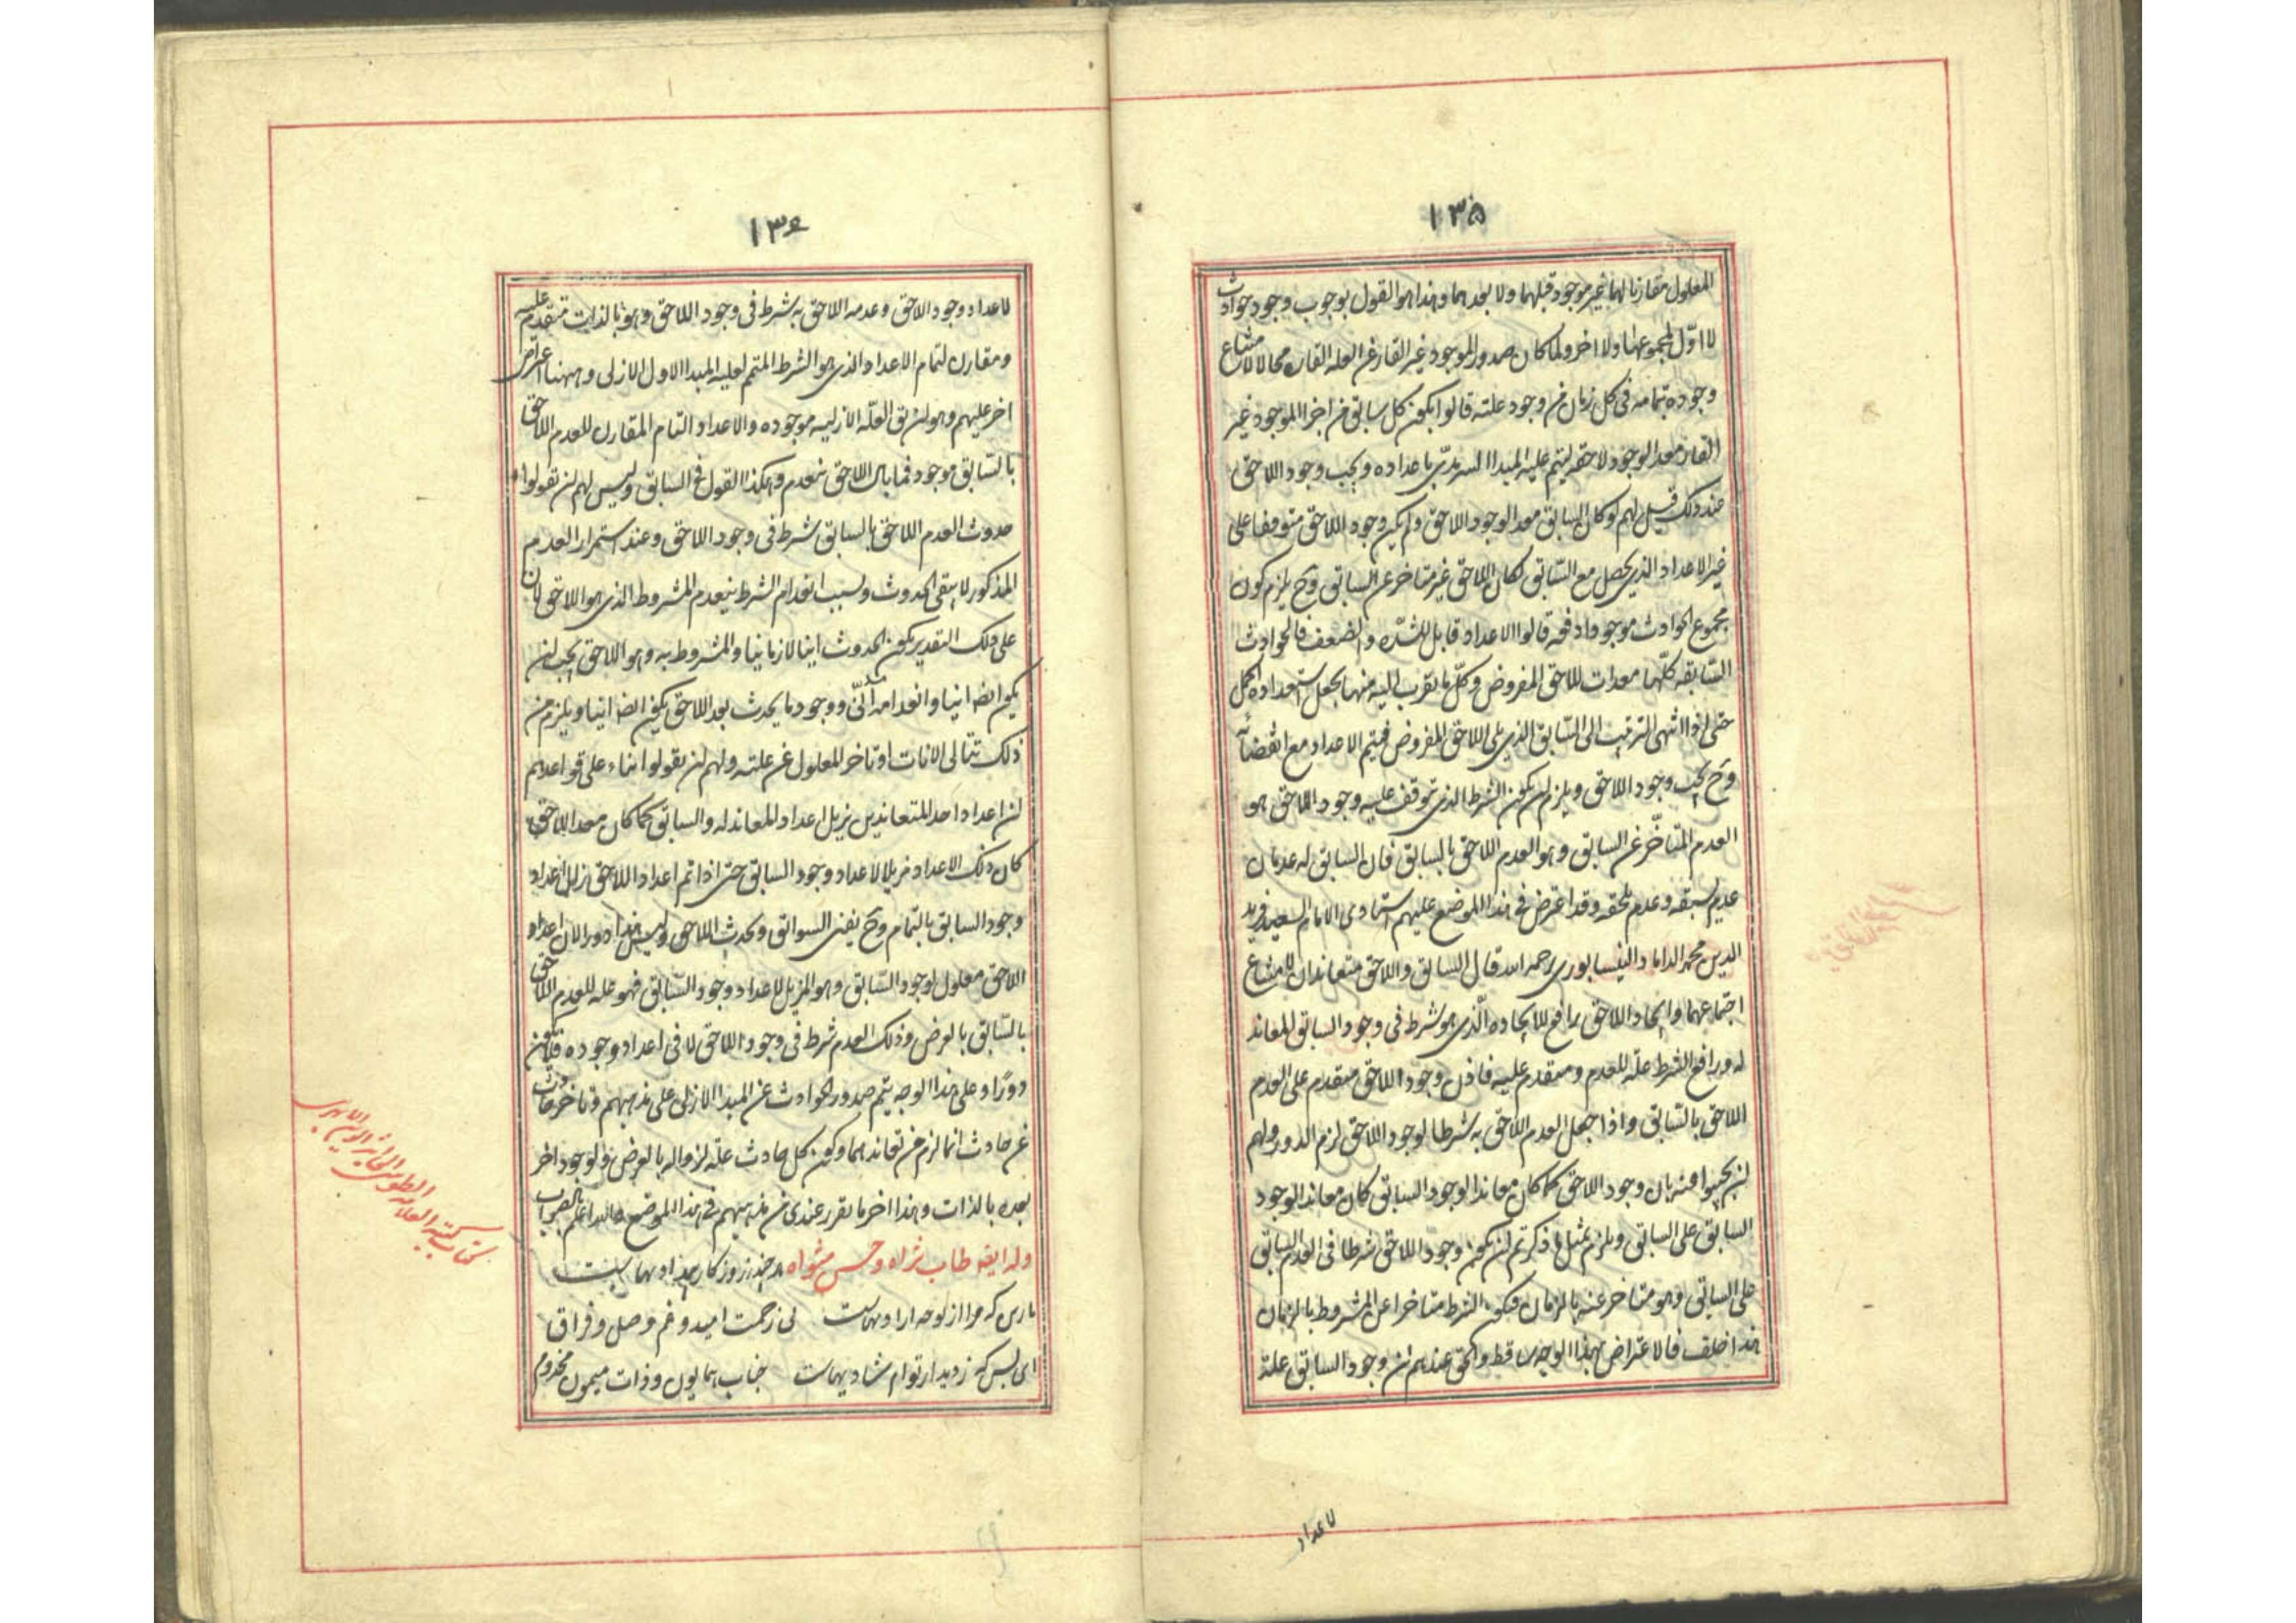 ١٣۵
المعلول مقارنا لهما غير موجود قبلهما ولا بعدهما وهذا هو القول بوجوب وجود حوادث
لا اوّل لمجموعها ولا اخر ولما كان صدور الموجود غير القار عن العله القاره محالا لامتناع
وجوده بتمامه فى كل زمان من وجود علته قالوا يكون كل سابق من اجزا الموجود غير
القار معدا لوجود لاحقه ليتم عليه المبدا السرمدى باعداده ويجب وجود اللاحق
عند ذلك قيل لهم لو كان السابق معدا لوجود اللاحق ولم يكن وجود اللاحق متوقفا على
غير الاعداد الذى يحصل مع السّابق لكان اللاحق غير متاخر عن السابق وح يلزم كون
مجموع الحوادث موجودا دفعه قالوا الاعداد قابل للشدّه والضعف فالحوادث
السّابقه كلّها معدات للاحق المفروض وكلّ ما يقرب اليه منها يجعل استعداده اكمل
حتى اذا انتهى الترتيب الى السّابق الذى يلى اللاحق المفروض فيتم الاعداد مع انقضائه
وح يجب وجود اللاحق ويلزم ان يكون الشرط الذى يتوقف عليه وجود اللاحق هو
العدم المتاخّر عن السابق وهو العدم اللاحق بالسابق فان السابق له عدمان
عدم يسبقه وعدم يلحقه وقد اعترض فى هذا الموضع عليهم استادى الامام السعيد فريد
الدين محمد الداماد النيسابورى رحمه الله قال السابق واللاحق متعاندان لامتناع
اجتماعهما وايجاد اللاحق رافع للايجاده الّذى هو شرط فى وجود السابق المعاند
له ورافع الشرط علّه للعدم ومتقدم عليه فاذن وجود اللاحق متقدم على العدم
اللاحق بالسّابق واذا جعل العدم اللاحق به شرطا لوجود اللاحق لزم الدور ولهم
ان يجيبوا عنه بان وجود اللاحق كما كان معاندا لوجود السابق كان معاندا لوجود
السابق على السابق ويلزم بمثل ما ذكرتم ان يكون وجود اللاحق شرطا فى العدم السابق
على السابق وهو متاخر عنه بالزمان فيكون الشرط متاخرا عن المشروط بالزمان
هذا خلف فالاعتراض بهذا الوجه ساقط والحق عندهم ان وجود السابق علة
لاعداد
١٣۶
لاعداد وجود اللاحق وعدمه اللاحق به شرط فى وجود اللاحق وهو بالذات متقدم عليه
ومقارن لتمام الاعداد الذى هو الشرط المتمم لعليه المبدا الاول الازلى وههنا اعتراض
اخر عليهم وهو ان يق العلّه الازليه موجوده والاعداد التام المقارن للعدم اللاحق
بالسّابق موجود فما بال اللاحق ينعدم وهكذا القول فى السابق وليس لهم ان يقولوا
حدوث العدم اللاحق بالسابق شرط فى وجود اللاحق وعند استمرار العدم
المذكور لا يبقى الحدوث وبسبب انعدام الشرط ينعدم المشروط الذى هو اللاحق لان
على ذلك التقدير يكون الحدوث انيا لا زمانيا والمشروط به وهو اللاحق يجب ان
يكون ايضا انيا وانعدامه انّى ووجود ما يحدث بعد اللاحق يكون ايضا انيا ويلزم من
ذلك تتالى الانات او تاخر المعلول عن علته ولهم ان يقولوا بناء على قواعدهم
ان اعداد احد المتعاندين يزيل اعداد المعاند له والسابق كما كان معدا للاحق
كان ذلك الاعداد مزيلا لاعداد وجود السابق حتى اذا تم اعداد اللاحق زال اعداد
وجود السابق بالتمام وح يفنى السوابق ويحدث اللاحق وليس هذا دورا لان اعداد
اللاحق معلول لوجود السّابق وهو المزيل لاعداد وجود السّابق فهو علة للعدم اللاحق
بالسّابق بالعرض وذلك العدم شرط فى وجود اللاحق لا فى اعداد وجوده فلا يكون
دورًا وعلى هذا الوجه يتم صدور الحوادث عن المبدا الازلى على مذهبهم وتاخر حادث
عن حادث انما لزم من تعاندهما وكون كل حادث علة لزواله بالعرض ولوجود اخر
بعده بالذات وهذا اخر ما تقرر عندى من مذهبهم فى هذا الموضع والله اعلم بالصواب
وله ايضه طاب ثراه وحسن مثواه هر چند ز روزگار بيدادیهاست
باری که مرا از تو چه آزادیهاست    بی زحمت امید و غم وصل و فراق
ای بس که ز دیدار توام شادیهاست    جناب همایون و ذات میمون مخدوم
كتاب كتبه العلامه الطوسى الى اثير الدين الابهرى